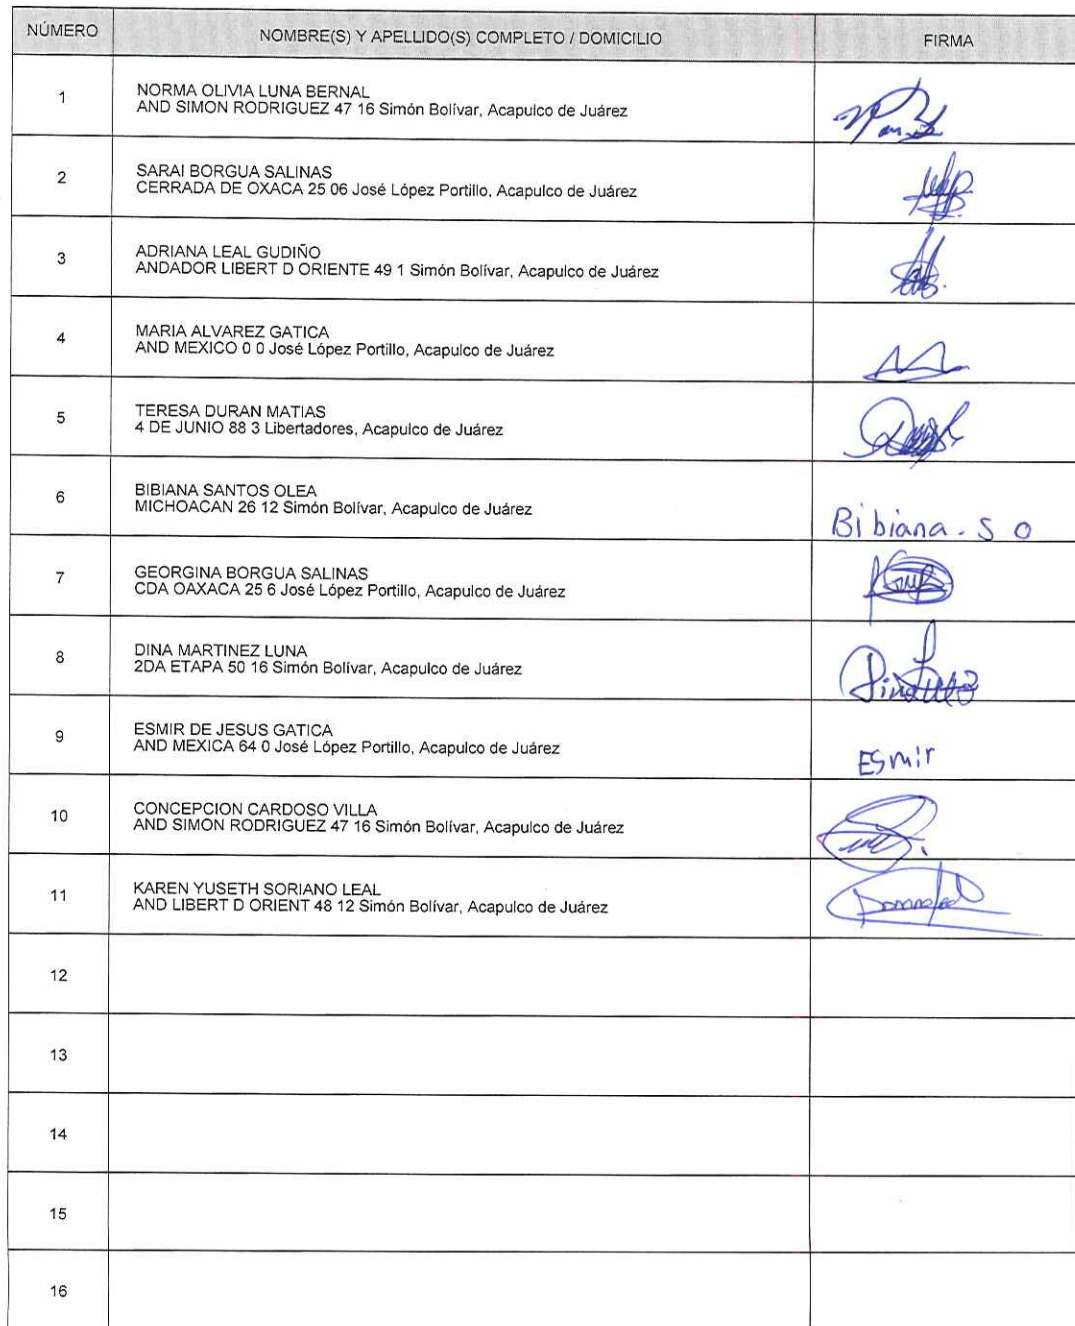 NÚMERO NOMBRE(S) Y APELLIDO(S) COMPLETO / DOMICILIO FIRMA
1 NORMA OLIVIA LUNA BERNAL
AND SIMON RODRIGUEZ 47 16 Simón Bolívar, Acapulco de Juárez
2 SARAI BORGUA SALINAS
CERRADA DE OXACA 25 06 José López Portillo, Acapulco de Juárez
3 ADRIANA LEAL GUDIÑO
ANDADOR LIBERT D ORIENTE 49 1 Simón Bolívar, Acapulco de Juárez
4 MARIA ALVAREZ GATICA
AND MEXICO 0 0 José López Portillo, Acapulco de Juárez
5 TERESA DURAN MATIAS
4 DE JUNIO 88 3 Libertadores, Acapulco de Juárez
6 BIBIANA SANTOS OLEA
MICHOACAN 26 12 Simón Bolívar, Acapulco de Juárez
Bibiana. S O
7 GEORGINA BORGUA SALINAS
CDA OAXACA 25 6 José López Portillo, Acapulco de Juárez
8 DINA MARTINEZ LUNA
2DA ETAPA 50 16 Simón Bolívar, Acapulco de Juárez
9 ESMIR DE JESUS GATICA
AND MEXICA 64 0 José López Portillo, Acapulco de Juárez
Esmir
10 CONCEPCION CARDOSO VILLA
AND SIMON RODRIGUEZ 47 16 Simón Bolívar, Acapulco de Juárez
11 KAREN YUSETH SORIANO LEAL
AND LIBERT D ORIENT 48 12 Simón Bolívar, Acapulco de Juárez
12
13
14
15
16